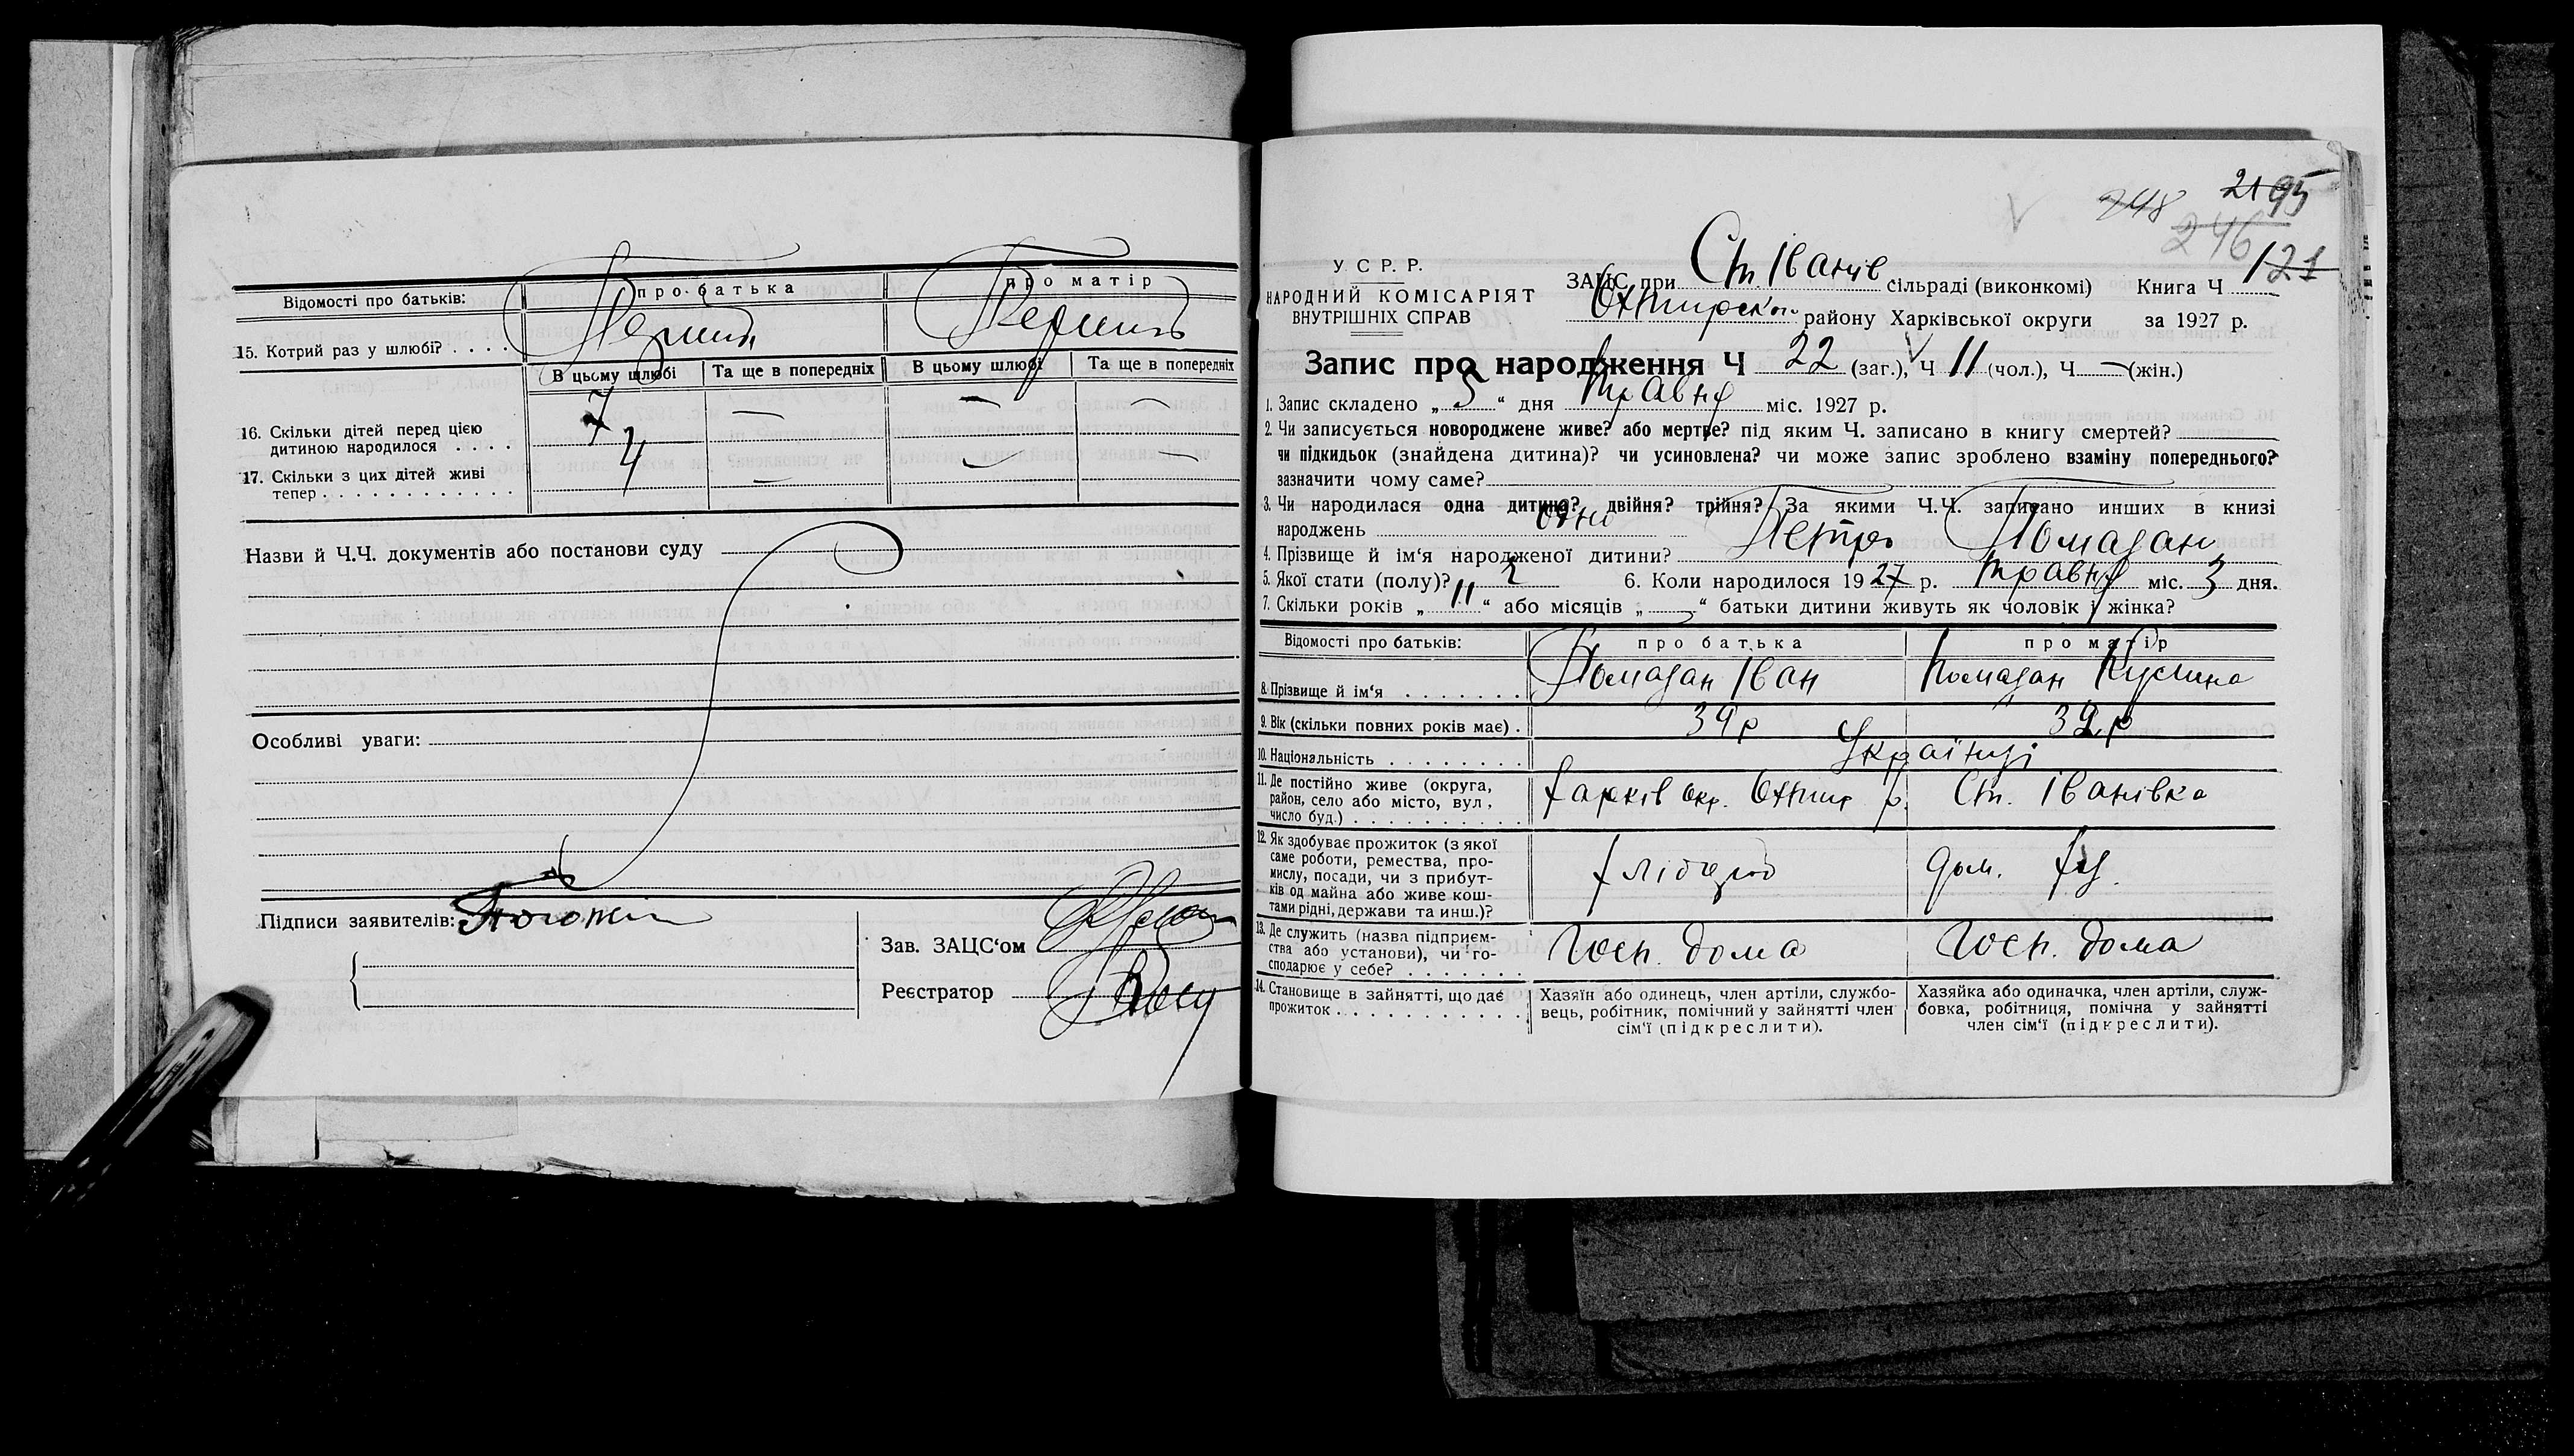 Відомості про батьків: про батька про матір
15. Котрий раз у шлюбі? . . . .
В цьому шлюбі Та ще в попередніх В цьому шлюбі Та ще в попередніх
16. Скільки дітей перед цією дитиною народилося . . . . 7 — — —
17. Скільки з цих дітей живі тепер . . . . . . . . . . . . 4 — — —
Назви й Ч.Ч. документів або постанови суду
Особливі уваги:
Підписи заявителів:
Зав. ЗАЦС‘ом
Реєстратор
248 2195
246
121
У. С Р. Р.
НАРОДНИЙ КОМІСАРІЯТ
ВНУТРІШНІХ СПРАВ
ЗАЦС при Ст. Іванів сільраді (виконкомі) Книга Ч
Охтирсько району Харківської округи за 1927 р.
Запис про народження Ч 22 (заг.), Ч 11 (чол.), Ч — (жін.)
1. Запис складено „ 5 “ дня травня міс. 1927 р.
2. Чи записується новороджене живе? або мертве? під яким Ч. записано в книгу смертей?
чи підкидьок (знайдена дитина)? чи усиновлена? чи може запис зроблено взаміну попереднього?
зазначити чому саме?
3. Чи народилася одна дитина? двійня? трійня? За якими Ч.Ч. записано инших в книзі
народжень одно
4. Прізвище й ім‘я народженої дитини? Петро Помазан
5. Якої стати (полу)? ч 6. Коли народилося 1927 р. травня міс. 3 дня.
7. Скільки років „ 11 “ або місяців „ — “ батьки дитини живуть як чоловік і жінка?
Відомості про батьків: про батька про матір
8. Прізвище й ім‘я . . . . . . . Помазан Іван Помазан
9. Вік (скільки повних років має) . 39 р 39 р
10. Національність . . . . . . . . Українці
11. Де постійно живе (округа, район, село або місто, вул., число буд.) . . . . . . . . . . Харків окр. Охтир р. Ст. Іванівка
12. Як здобуває прожиток (з якої саме роботи, ремества, промислу, посади, чи з прибутків од майна або живе коштами рідні, держави та инш.)? хлібороб дом. хаз.
13. Де служить (назва підприємства або установи), чи господарює у себе? . . . . . . . Госп. дома Госп. дома
14. Становище в зайнятті, що дає прожиток . . . . . . . . . . . .
Хазяїн або одинець, член артіли, службовець, робітник, помічний у зайнятті член сім‘ї (підкреслити).
Хазяйка або одиначка, член артіли, службовка, робітниця, помічна у зайнятті член сім‘ї (підкреслити).